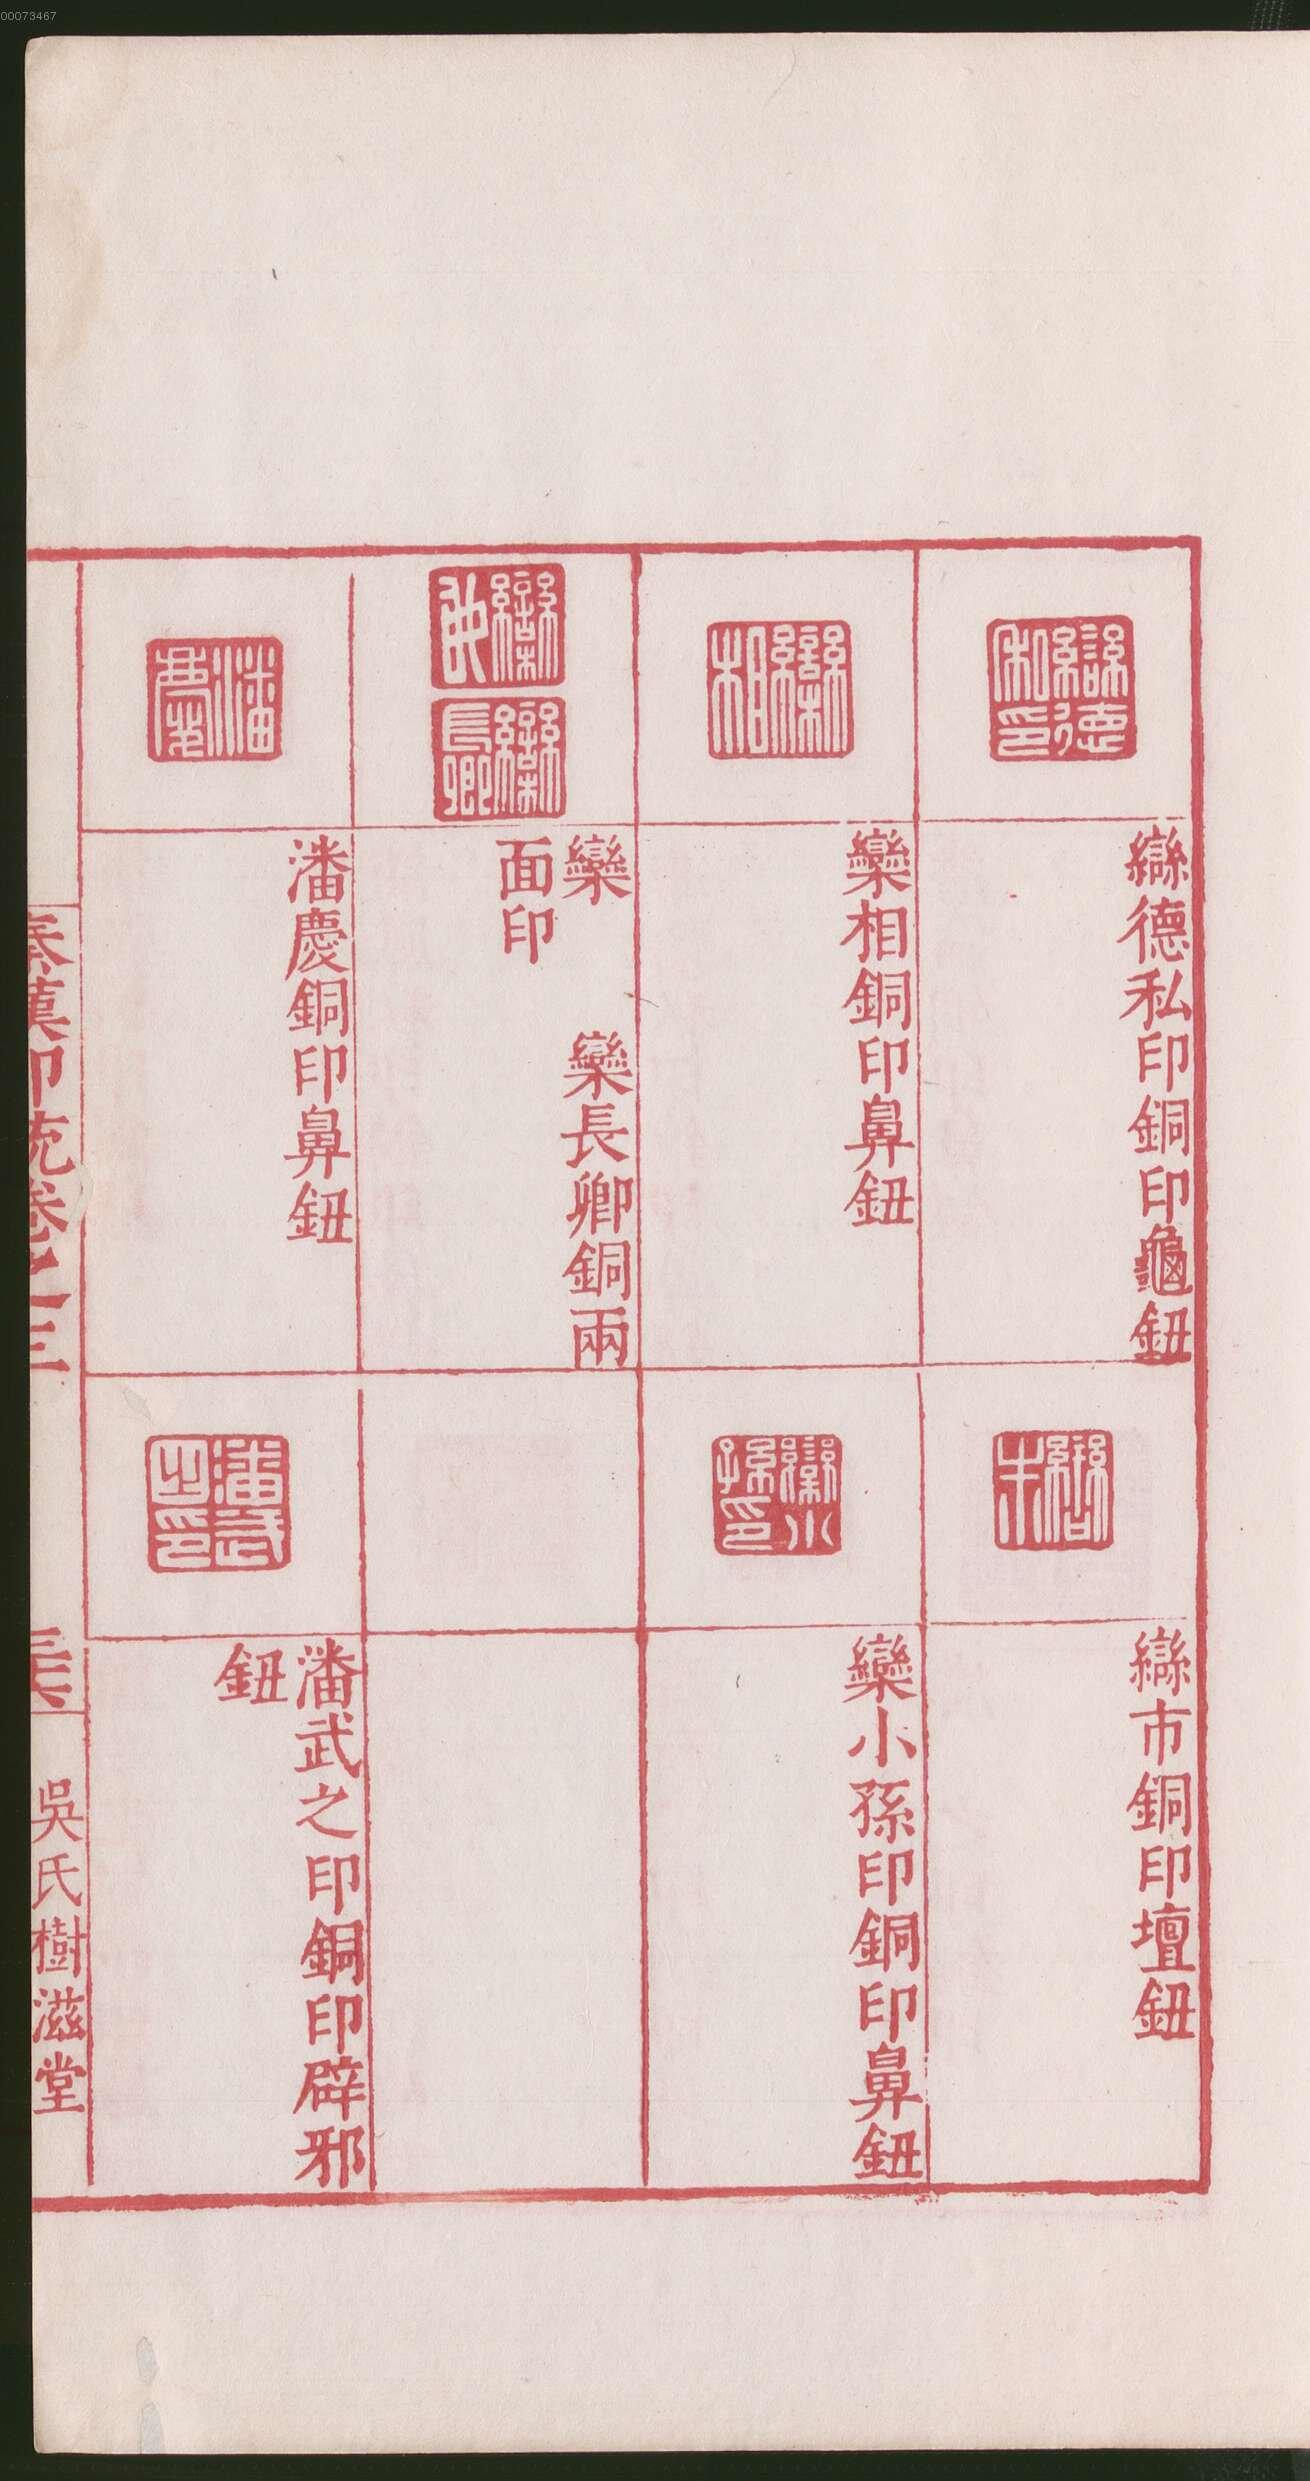 00073467
䜌德私印銅印龜鈕
欒相銅印鼻鈕
欒　欒長卿銅兩
面印
潘慶銅印鼻鈕
䜌市銅印壇鈕
欒小孫印銅印鼻鈕
潘武之印銅印辟邪
鈕
秦漢印統卷之三
吳氏樹滋堂